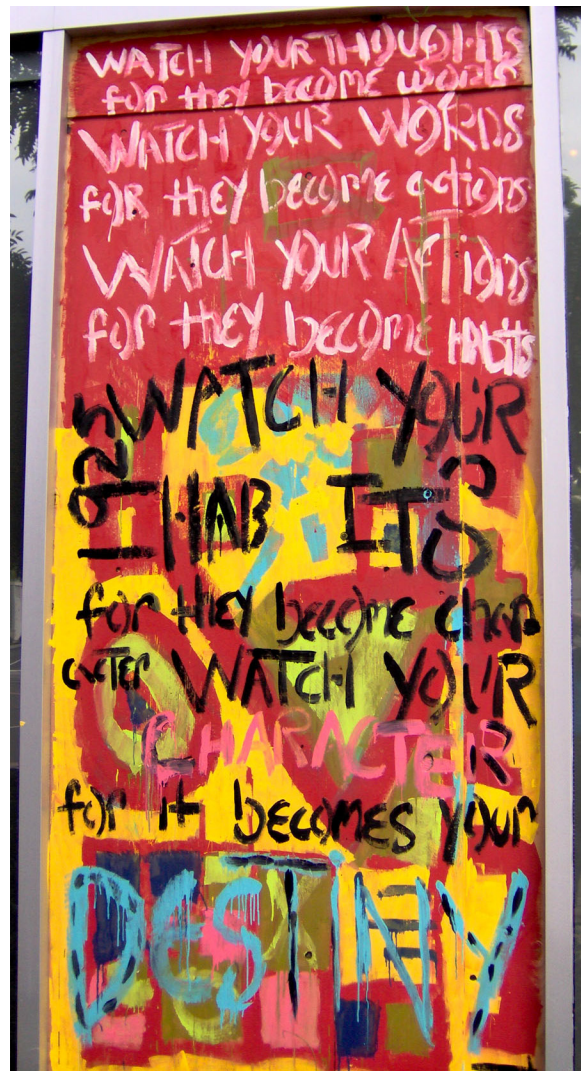 WATCH YOUR THOUGHTS
for they become words
WATCH YOUR WORDS
foR they become actions
WATCH YOUR ACTions
for they become HAbits
WATCH YOUR
1925
HABITS
for they become char
acter WATCH YOUR
CHARACTER
for it becomes your
DESTINY